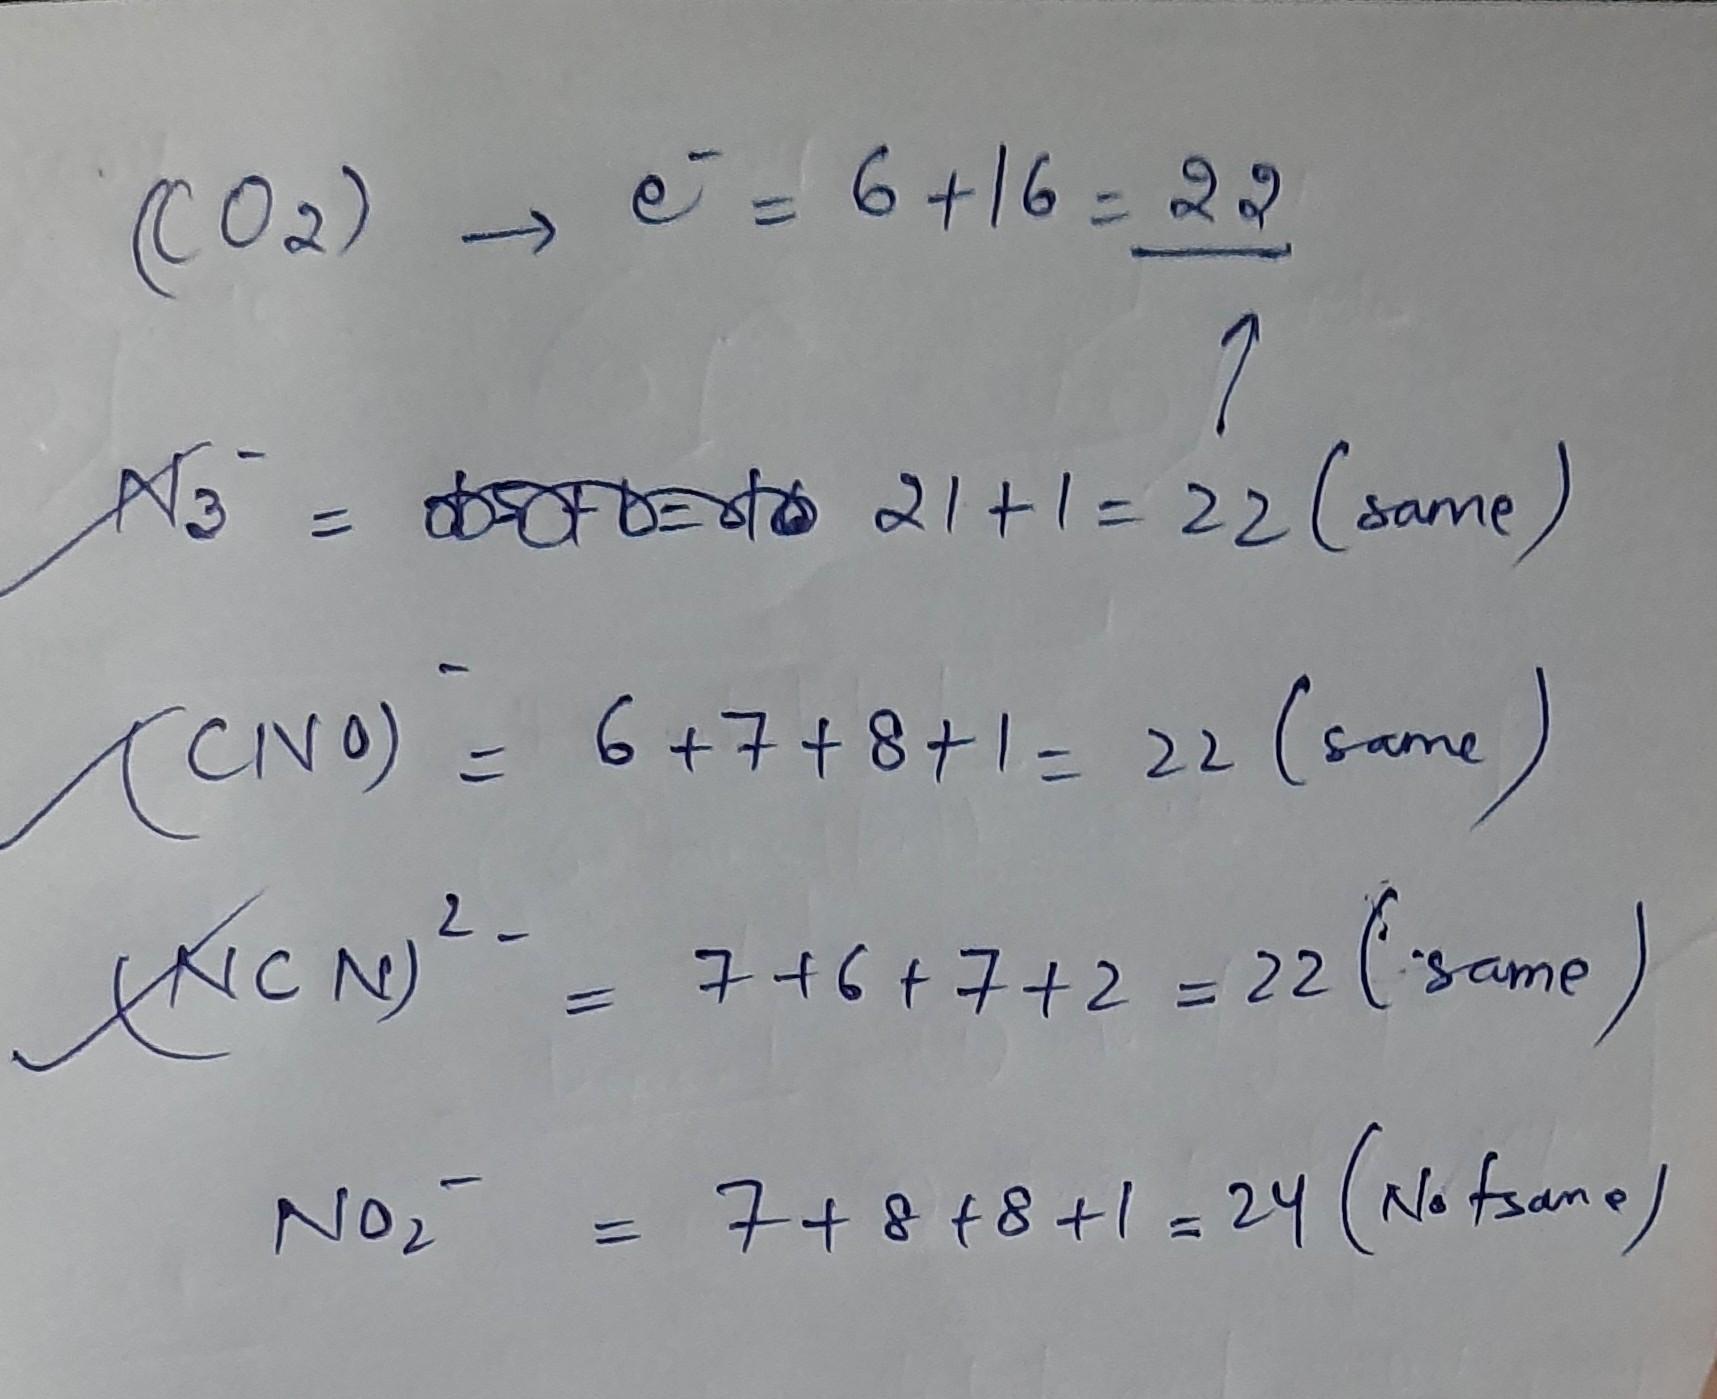 (CO₂) → e⁻ = 6 + 16 = 22
↑
N₃⁻ = 21 + 1 = 22 (same)
(CNO)⁻ = 6 + 7 + 8 + 1 = 22 (same)
(NCN)²⁻ = 7 + 6 + 7 + 2 = 22 (same)
NO₂⁻ = 7 + 8 + 8 + 1 = 24 (Not same)